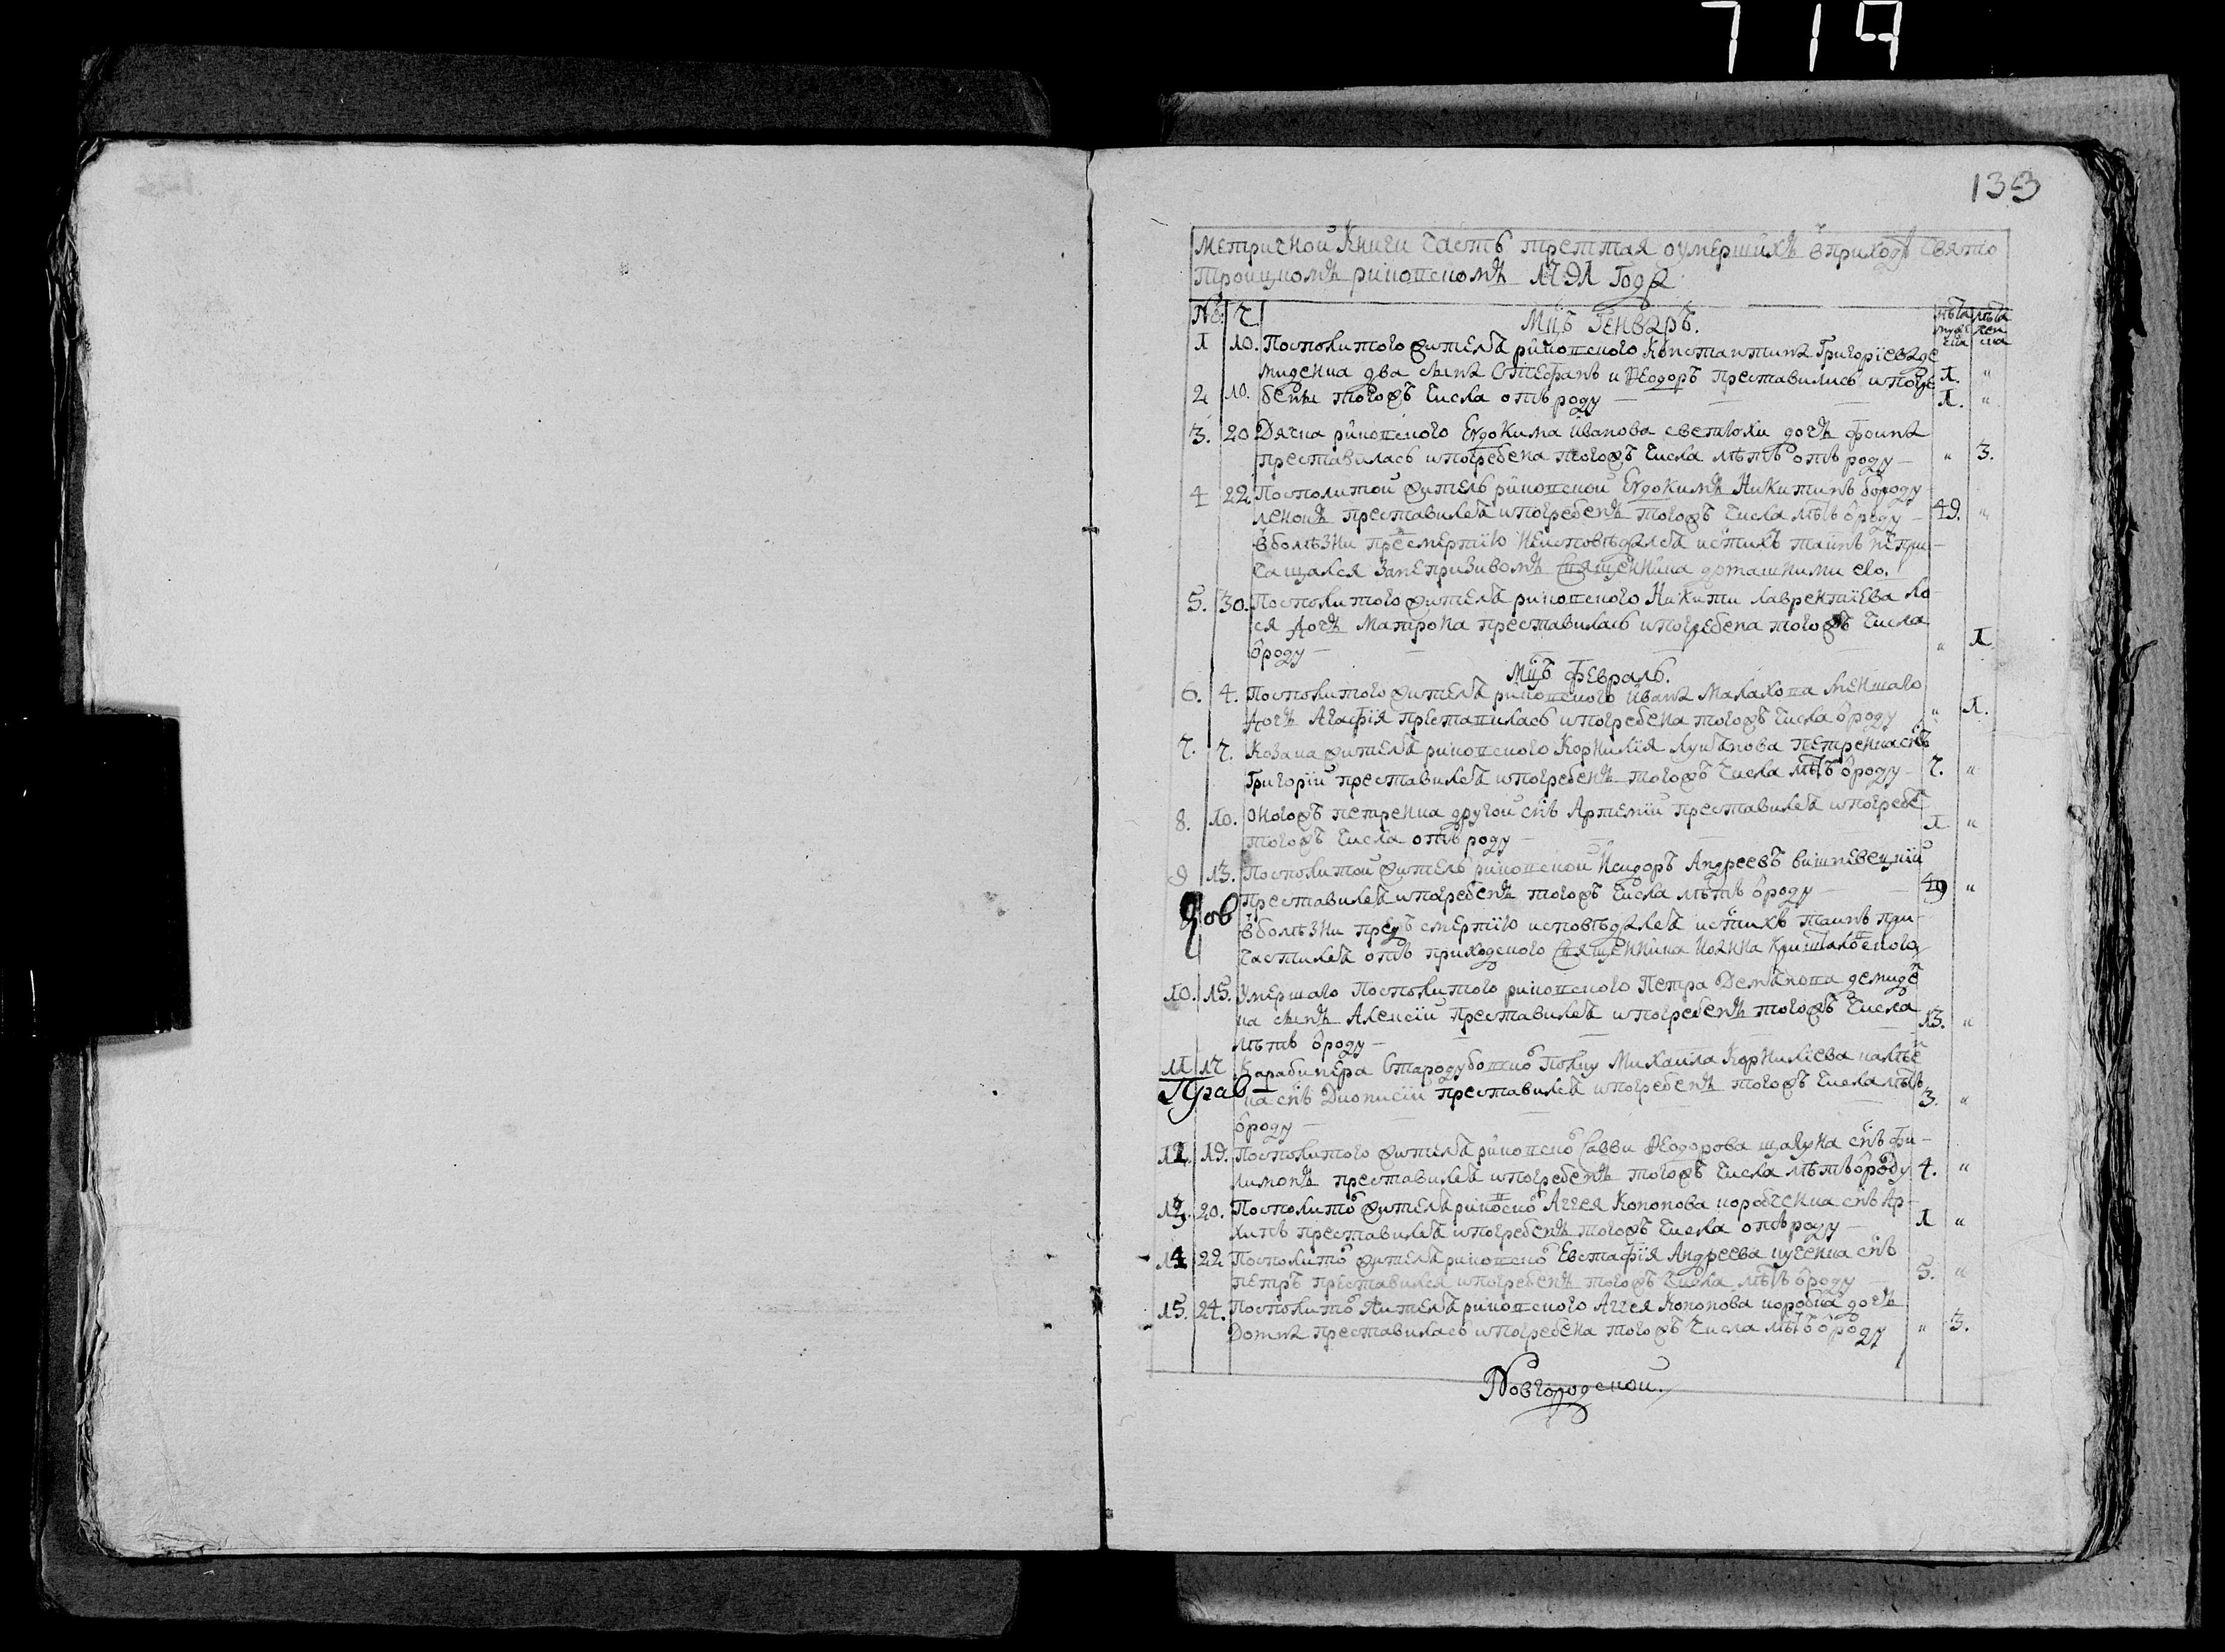 719
133
Метричной Книги Часть треттая оумершихъ вприходѣ Свято
Троицкомъ риковскомъ году
№ Ч. Мцъ Генварь. лѣта мужеска лѣта женска
1 10. Посполитого жителя риковского Константина Григориева де
миденка два сына Стефанъ и Ѳеодоръ преставились и погре 1. "
2 10. бены тогожъ числа отъ роду — 1. "
3. 20 Дячка риковского Евдокима Иванова дочь
преставилась и погребена тогожъ числа лѣтъ отъ роду — " 3.
4 22 Посполитой житель риковской Евдокимъ Никитинъ
преставился и погребенъ тогожъ числа лѣтъ ѿроду — 49. "
в болѣзни пред смертию неисповѣдался и стихъ таинъ непри-
чащался занепризивомъ Священника домашними его.
5. 30. Посполитого жителя риковского Никити Лаврентиева ло
ся дочь Матрона преставилась и погребена тогожъ числа
ѿроду — " 1
Мцъ Февраль.
6. 4. Посполитого жителя риковского Ивана Малахова меншаго
дочь Агафия преставилась и погребена тогожъ числа ѿроду " 1.
7. 7. Козака жителя риковского Корнилия Лукянова петренка снъ
Григорий преставился и погребенъ тогожъ числа лѣтъ ѿроду — 7. "
8. 10. Оногожъ петренка другой снъ Артемий преставился и погребе
тогожъ числа отъ роду — 1 "
9 13. Посполитой житель риковской Исидоръ Андреевъ вишневецкий
преставился и погребенъ тогожъ числа лѣтъ ѿроду — 49 "
в болѣзни предъ смертию исповѣдался и стихъ таинъ при-
частился отъ приходского Священника Иоанна
10. 15. Умершаго Посполитого риковского Петра Демянова демиде
ка сынъ Алексий преставился и погребенъ тогожъ числа 13. "
лѣтъ ѿроду —
11 17 Карабинера Стародубовско Полку Михаила Корнилиева
ка снъ Дионисий преставился и погребенъ тогожъ числа лѣтъ 3. "
ѿроду —
12. 19. Посполитого жителя риковско Савви Ѳеодорова снъ Фи-
лимонъ преставился и погребенъ тогожъ числа лѣтъ ѿроду 4. "
13. 20. Посполито жителя риковско Аггея Кононова коробченка снъ Ар-
хипъ преставился и погребенъ тогожъ числа отъ роду — 1 "
14 22 Посполито жителя риковско Евстафия Андреева кученка снъ
петръ преставился и погребенъ тогожъ числа лѣтъ ѿроду 5. "
15. 24. Посполито жителя риковского Аггея Кононова коробка дочь
Домна преставилась и погребена тогожъ числа лѣтъ ѿроду " 3.
Новгородской.